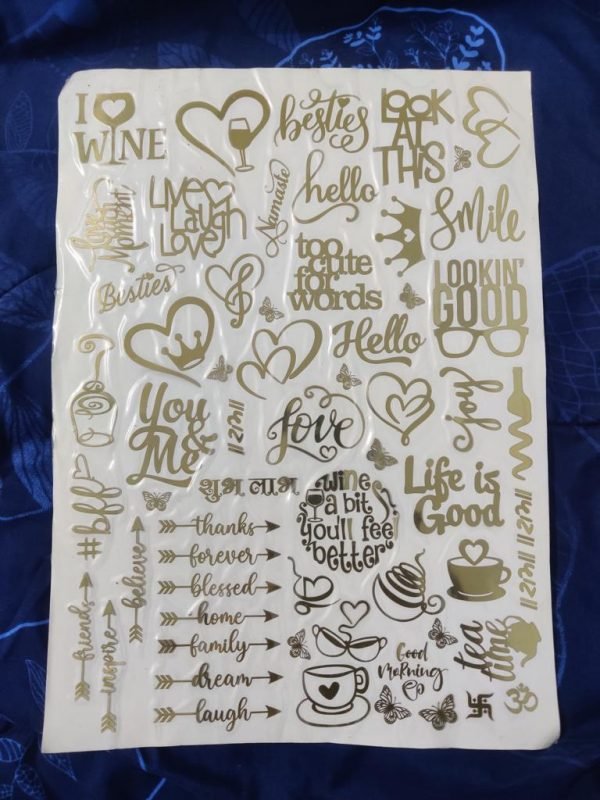 I WINE
besties
LOOK
AT
THIS
Moment
Live
Laugh
Love
Namaste
hello
Smile
too
cute
for
words
LOOKIN'
GOOD
Besties
Hello
You
&
Me
Love
joy
शुभ लाभ
wine
a bit
you'll feel
better
Life is
Good
#bff
believe
friends
inspire
thanks
forever
blessed
home
family
dream
laugh
Good
Morning
tea
time
ॐ